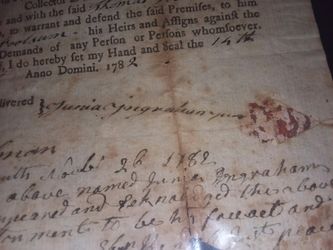 Collector
and with the said Thomas
to warrant and defend the said Premises, to him
his Heirs and Assigns against the
Demands of any Person or Persons whomsoever.
I do hereby set my Hand and Seal the 14th
Anno Domini. 1782
livered
Junia Ingraham
Novbr 26 1782
above named Junia Ingraham
appeared and Acknowledged the above
to be his free act and